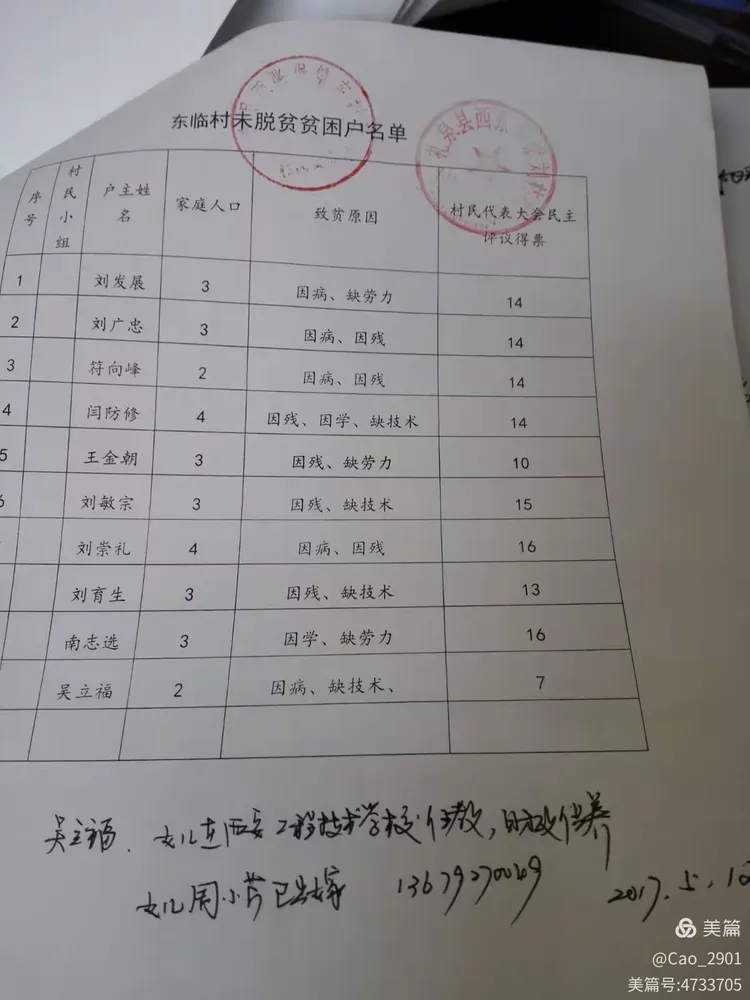 东临村未脱贫贫困户名单
礼泉县西张堡
序号 村民小组 户主姓名 家庭人口 致贫原因 村民代表大会民主评议得票
1 刘发展 3 因病、缺劳力 14
2 刘广忠 3 因病、因残 14
3 符向峰 2 因病、因残 14
4 闫防修 4 因残、因学、缺技术 14
5 王金朝 3 因残、缺劳力 10
6 刘敏宗 3 因残、缺技术 15
刘崇礼 4 因病、因残 16
刘育生 3 因残、缺技术 13
南志选 3 因学、缺劳力 16
吴立福 2 因病、缺技术、 7
吴立福. 女儿在西安工程技术学校任教,
女儿周小芹已出嫁 13679270049 2017.5.1
美篇
@Cao_2901
美篇号:4733705